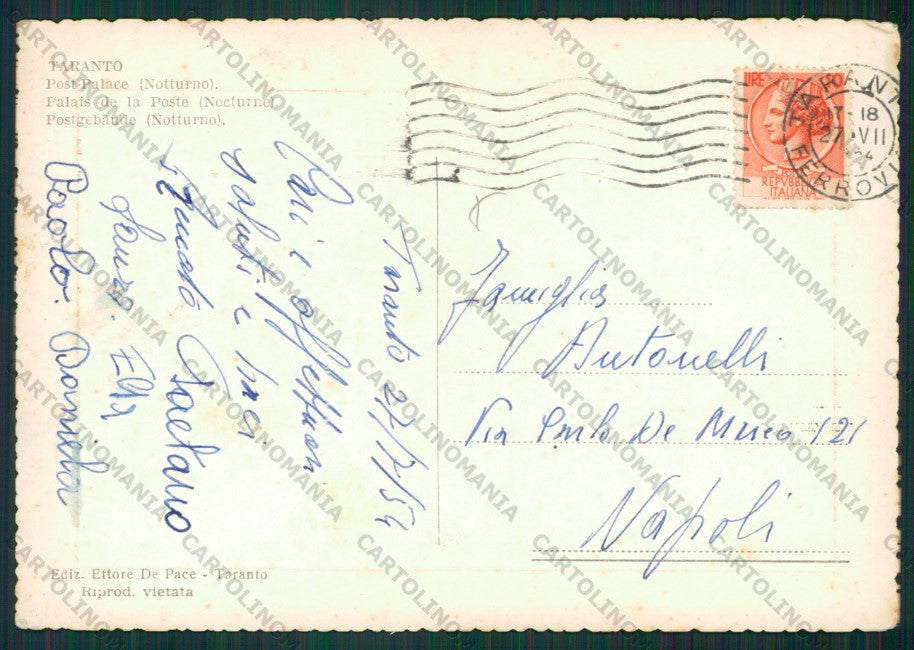 TARANTO
Post-Palace (Notturno).
Palais de la Poste (Nocturne)
Postgebäude (Notturno).
Taranto 27/7/54
Cari e affettuosi
saluti e baci
Gaetano
Laura.
Paolo. Domila
Ediz. Ettore De Pace - Taranto
Riprod. vietata
LIRE
REPUBBLICA
ITALIANA
TARANTO
18
27 VII
FERROVIA
Famiglia
Antonelli
Via Emilio De Marco 121
Napoli
CARTOLINOMANIA